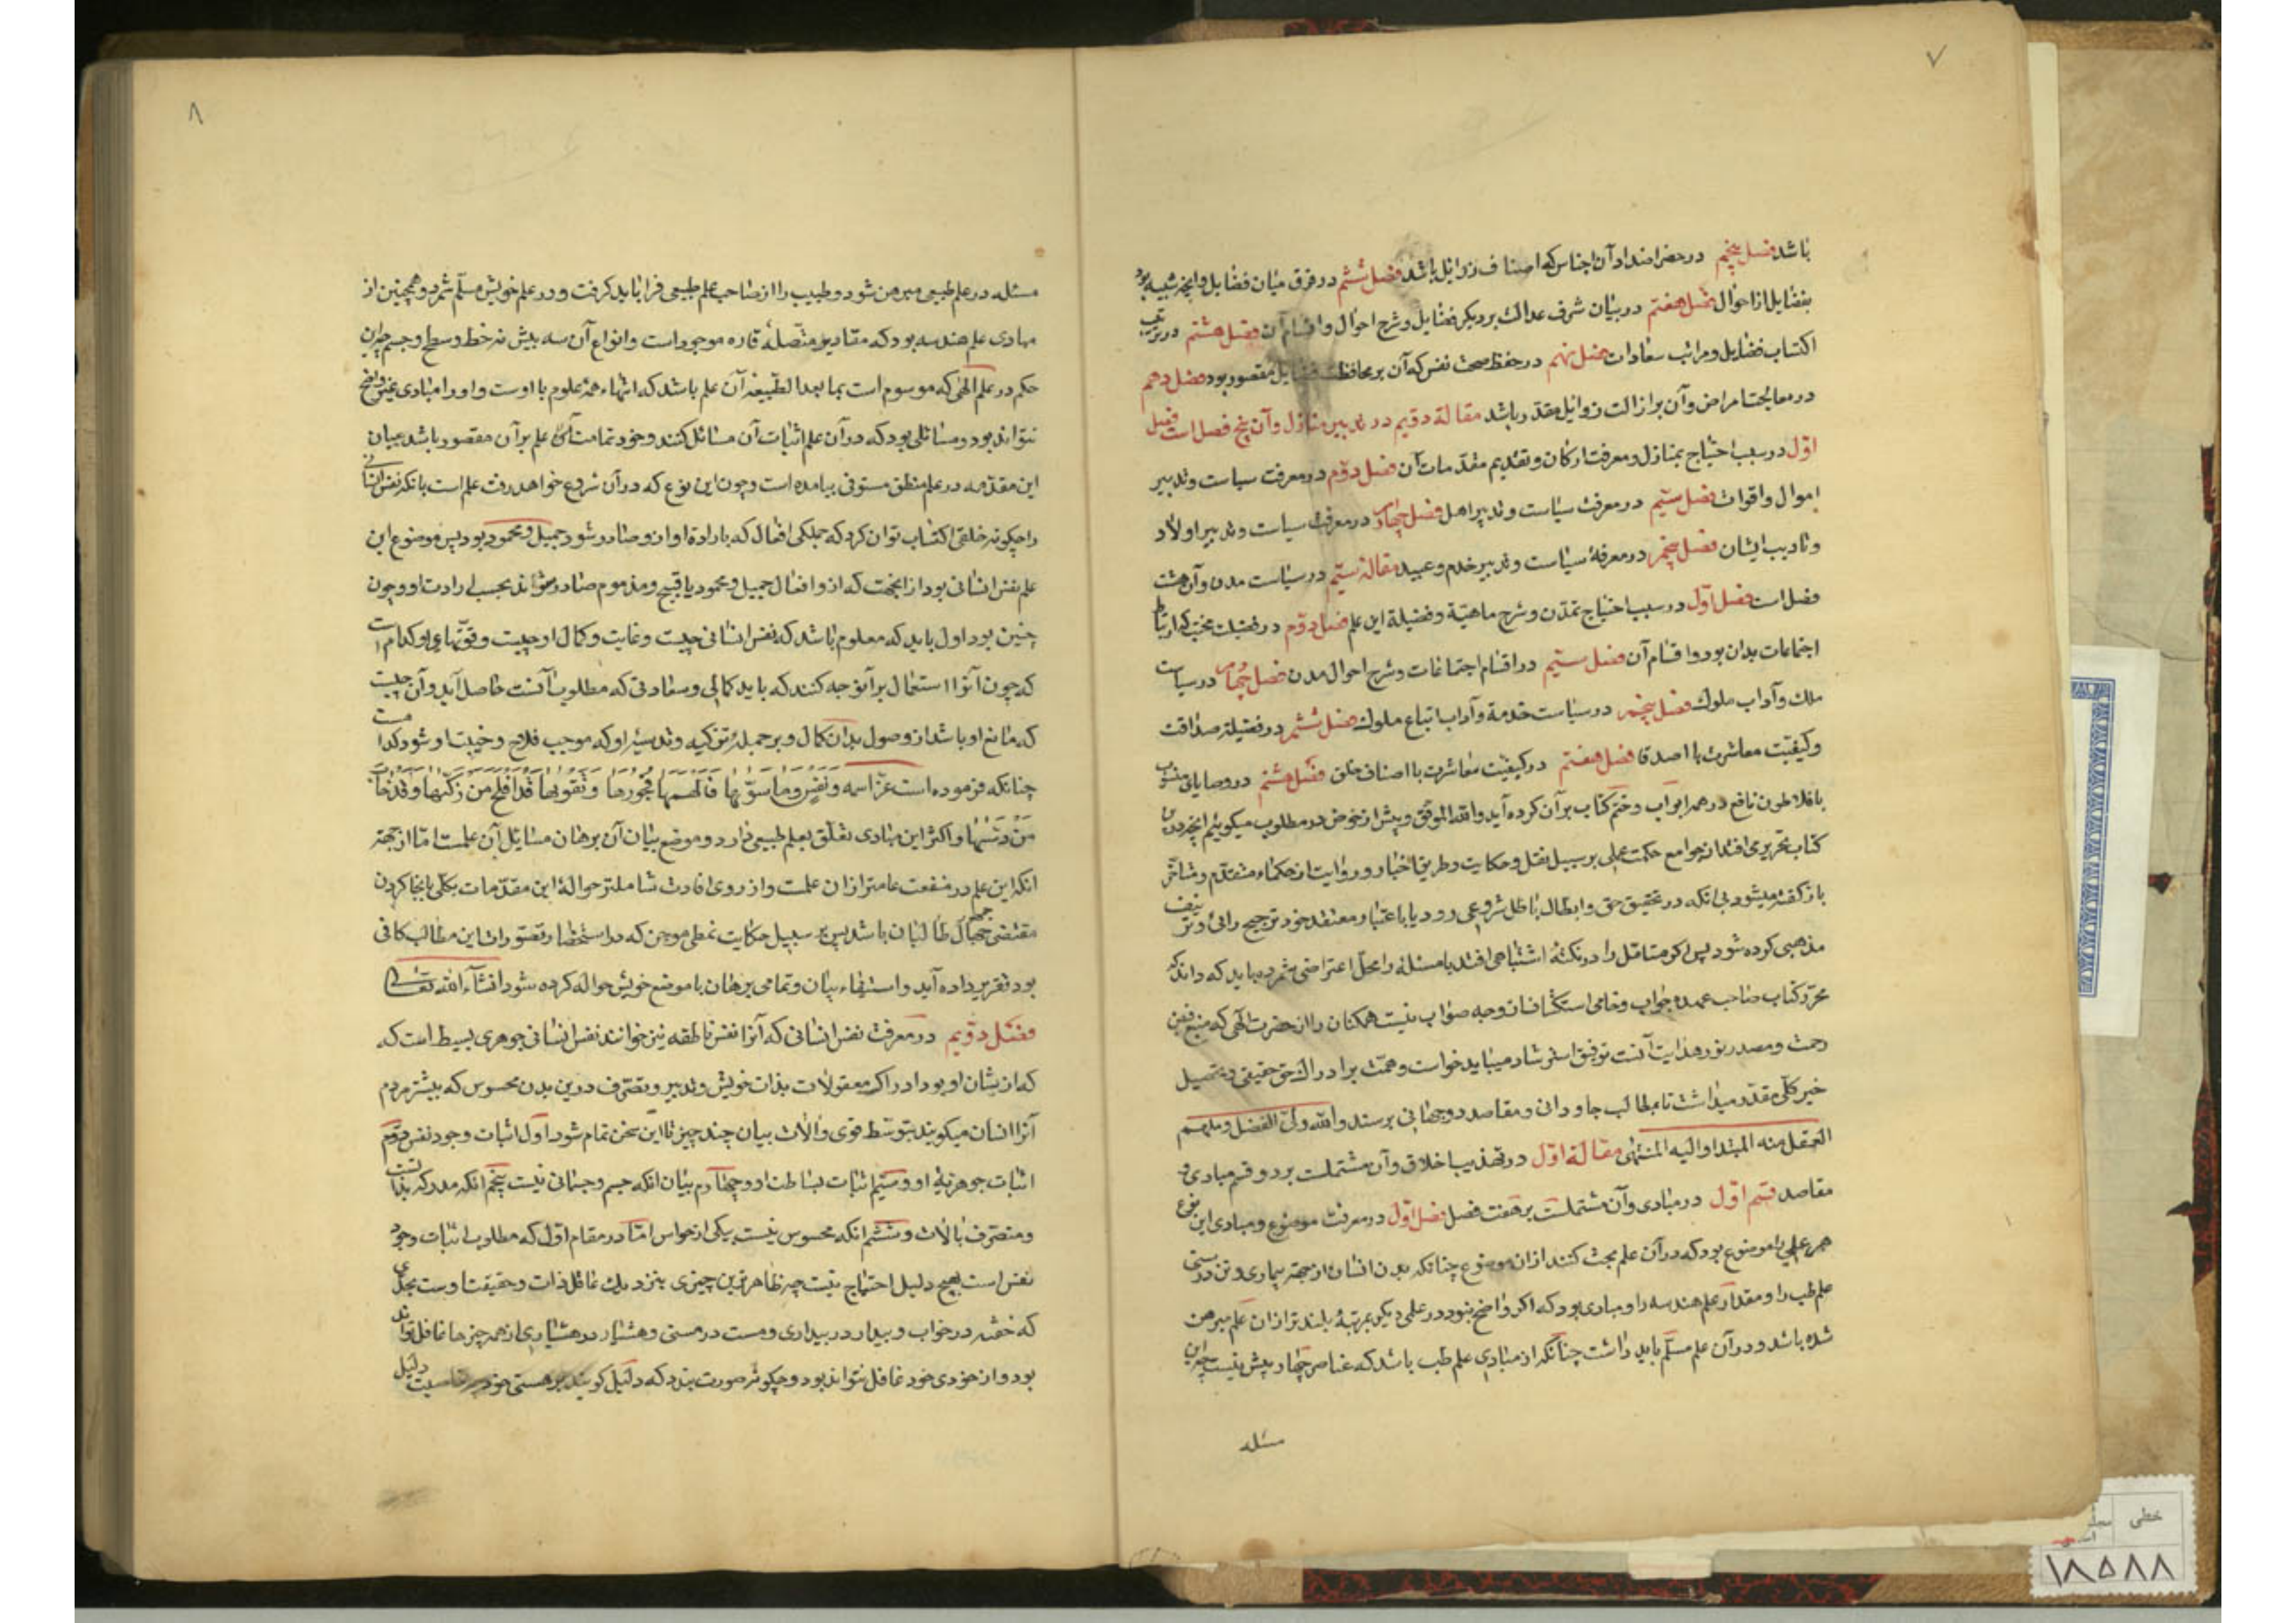 ۷
باشد فصل پنجم در حصر اضداد آن اجناس که اصناف رذایل باشد فصل ششم در فرق میان فضایل و انچه شبیه بود
بفضایل از احوال فصل هفتم در بیان شرف عدالت بر دیگر فضایل و شرح احوال و اقسام آن فصل هشتم در ترتیب
اکتساب فضایل و مراتب سعادات فصل نهم در حفظ صحت نفس که آن بر محافظت فضایل مقصور بود فصل دهم
در معالجت امراض و آن بر ازالت رذایل مقدر باشد مقالة دویم در تدبیر منازل و آن پنج فصل است فصل
اول در سبب احتیاج بمنازل و معرفت ارکان و تقدیم مقدمات آن فصل دوم در معرفت سیاست و تدبیر
اموال و اقوات فصل سیم در معرفت سیاست و تدبیر اهل فصل چهارم در معرفت سیاست و تدبیر اولاد
و تادیب ایشان فصل پنجم در معرفة سیاست و تدبیر خدم و عبید مقالة سیم در سیاست مدن و آن هشت
فصل است فصل اول در سبب احتیاج بتمدن و شرح ماهیة و فضیلة این علم فصل دوم در فضیلت محبت که ارتباط
اجتماعات بدان بود و اقسام آن فصل سیم در اقسام اجتماعات و شرح احوال مدن فصل چهارم در سیاست
ملک و آداب ملوک فصل پنجم در سیاست خدمة و آداب اتباع ملوک فصل ششم در فضیلة صداقت
و کیفیت معاشرت با اصدقا فصل هفتم در کیفیت معاشرت با اصناف خلق فصل هشتم در وصایای منسوب
بافلاطون نافع در همه ابواب و ختم کتاب بر آن کرده آید والله الموفق و پیش از خوض در مطلوب میگوئیم انچه درین
کتاب تحریر می افتد از جوامع حکمت عملی بر سبیل نقل و حکایت و طریق اخبار و روایت از حکماء متقدم و متاخر
باز گفته میشود بی انکه در تحقیق حق و ابطال باطل شروعی رود یا باعتبار معتقد خود ترجیح رائی و تزییف
مذهبی کرده شود پس اگر متامل را در نکتهٔ اشتباهی افتد یا مسئلهٔ را محل اعتراضی شمرد باید که داند که
محرر کتاب صاحب عهدهٔ جواب و ضامن استکشاف از وجه صواب نیست همکنان را از حضرت الهی که منبع فیض
رحمت و مصدر نور هدایت آنست توفیق استرشاد میباید خواست و همت بر ادراک حق حقیقی و تحصیل
خیر کلی مقدر میداشت تا بمطالب جاودانی و مقاصد دوجهانی برسند والله ولی الفضل و ملهم
العقل منه المبتدا و الیه المنتهی مقالة اول در تهذیب اخلاق و آن مشتملست بر دو قسم مبادی و
مقاصد قسم اول در مبادی و آن مشتملست بر هفت فصل فصل اول در معرفت موضوع و مبادی این نوع
هر علمی را موضوع بود که در آن علم بحث کنند از آن موضوع چنانکه بدن انسان از جهة بیماری و تن درستی
علم طب را و مقدار علم هندسه را و مبادی بود که اگر واضح نبود در علمی دیگر بمرتبهٔ بلندتر از آن علم مبرهن
شده باشد و در آن علم مسلم باید داشت چنانکه از مبادی علم طب باشد که عناصر چهار بیش نیست چه این
مسئله
۸
مسئله در علم طبیعی مبرهن شود و طبیب را از صاحب علم طبیعی فرا باید گرفت و در علم خویش مسلم شمرد و همچنین از
مبادی علم هندسه بود که مقادیر متصلهٔ قاره موجود است و انواع آن سه بیش نه خط و سطح و جسم چه این
حکم در علم الهی که موسوم است بما بعد الطبیعه آن علم باشد که انتهاء همهٔ علوم با اوست و او را مبادی غیر واضح
نتواند بود و مسائلی بود که در آن علم اثبات آن مسائل کنند و خود تمامت آن علم بر آن مقصور باشد بیان
این مقدمه در علم منطق مستوفی بیامده است و چون این نوع که در آن شروع خواهد رفت علم است بانکه نفس انسانی
را چگونه خلقی اکتساب توان کرد که جملگی افعال که بارادة او ازو صادر شود جمیل و محمود بود پس موضوع این
علم نفس انسانی بود از انجهت که ازو افعال جمیل و محمود یا قبیح و مذموم صادر تواند بحسب ارادت او و چون
چنین بود اول باید که معلوم باشد که نفس انسانی چیست و غایت و کمال او چیست و قوتهای او کدام است
که چون آنرا استعمال بر آن وجه کنند که باید کمالی و سعادتی که مطلوب آنست حاصل آید و آن چیست
که مانع او باشد از وصول بدان کمال و بر جمله تزکیه و تدسیهٔ او که موجب فلاح و خیبت او شود کدامست
چنانکه فرموده است عز اسمه وَنَفْسٍ وَمَا سَوّٰیها فَاَلْهَمَها فُجُورَها وَتَقْویها قَدْ اَفْلَحَ مَنْ زَکّٰیها وَقَدْ خابَ
مَنْ دَسّٰیها و اکثر این مبادی تعلق بعلم طبیعی دارد و موضع بیان آن برهان مسایل آن علمست اما از جهة
انکه این علم در منفعت عامتر از ان علمست و از روی افادت شاملتر حوالهٔ این مقدمات بکلی بانجا کردن
مقتضی حرمان طالبان باشد پس بر سبیل حکایت نمطی موجز که در استحضار و تصورات این مطالب کافی
بود تقریر داده آید و استیفاء بیان و تمامی برهان با موضع خویش حواله کرده شود انشاء الله تعالی
فصل دویم در معرفت نفس انسانی که آنرا نفس ناطقه نیز خوانند نفس انسانی جوهری بسیط است که
که از شان او بود ادراک معقولات بذات خویش و تدبیر و تصرف درین بدن محسوس که بیشتر مردم
آنرا انسان میگویند بتوسط قوی و الات بیان چند چیز تا این سخن تمام شود اول اثبات وجود نفس دوم
اثبات جوهریة او و سیم اثبات بساطت او و چهارم بیان انکه جسم و جسمانی نیست پنجم انکه مدرکه بذاتست
و متصرف بالات و ششم انکه محسوس نیست بیکی از حواس اما در مقام اول که مطلوب اثبات وجود
نفس است بهیچ دلیل احتیاج نیست چه ظاهرترین چیزی بنزدیک عاقل ذات و حقیقت اوست بحدی
که خفته در خواب و بیدار در بیداری و مست در مستی و هشیار در هشیاری از همه چیزها غافل تواند
بود و از خودی خود غافل نتواند بود و چگونه صورت بندد که دلیل گویند بر هستی خود دلیل
خطی
۱۸۵۸۸